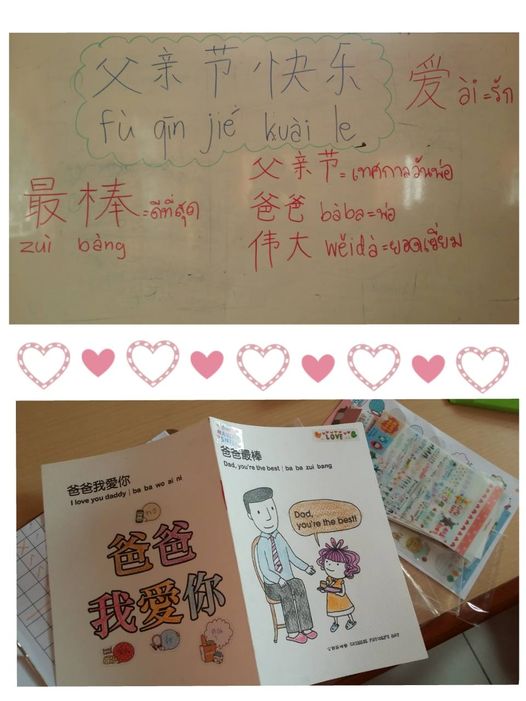 父亲节快乐
fù qīn jié kuài le
爱 ài=รัก
最棒=ดีที่สุด
zuì bàng
父亲节=เทศกาลวันพ่อ
爸爸 bàba=พ่อ
伟大 wěidà=ยอดเยี่ยม
爸爸我愛你
I love you daddy | ba ba wo ai ni
爸爸
我愛你
LOVE
爸爸最棒
Dad, you're the best | ba ba zui bang
Dad,
you're the best!!
CHINESE FATHER'S DAY